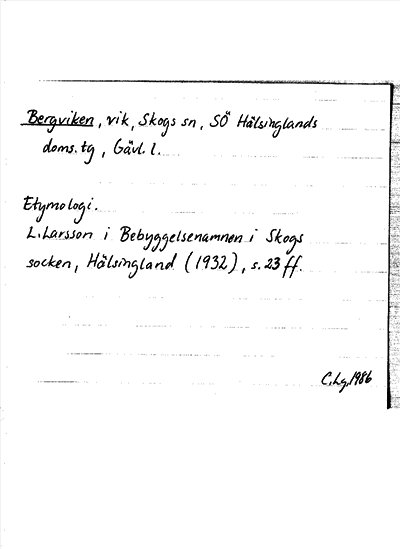 Bergviken, vik, Skogs sn, SÖ Hälsinglands
doms. tg, Gävl. l.
Etymologi.
L. Larsson i Bebyggelsenamnen i Skogs
socken, Hälsingland (1932), s. 23 ff.
C. Lg. 1986